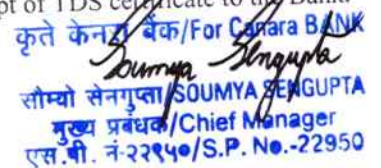 pt of TDS certificate to the Bank.
कृते केनरा बैंक/For Canara BANK
Soumya Sengupta
सौम्यो सेनगुप्ता/SOUMYA SENGUPTA
मुख्य प्रबंधक/Chief Manager
एस.बी. नं-२२९५०/S.P. No.-22950